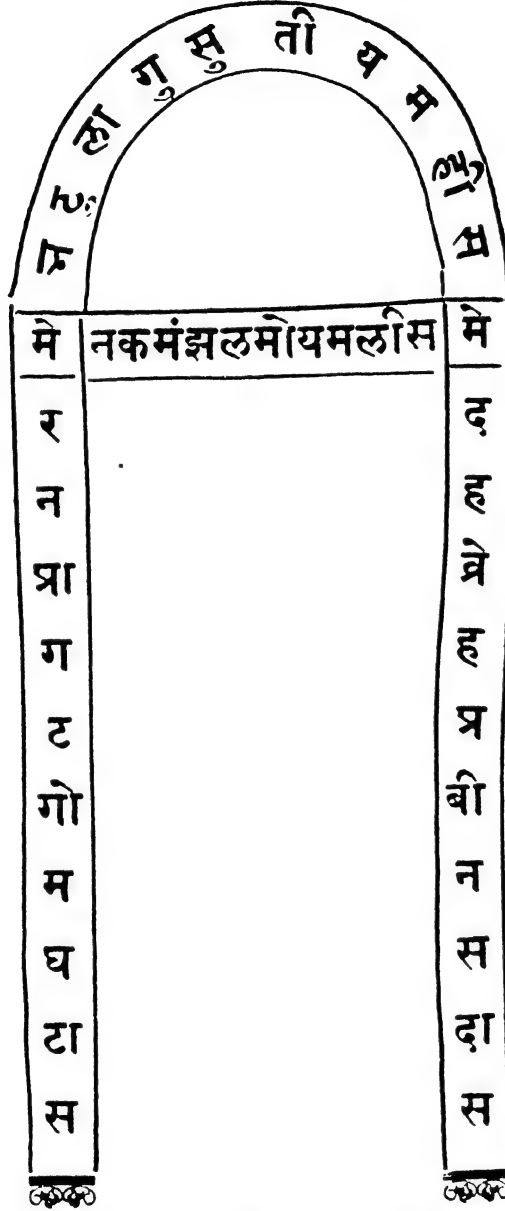 ला गु सु ती य म स
मे नकमंझलमोयमलीस मे
र
न
प्रा
ग
ट
गो
म
घ
टा
स
द
ह
ह
प्र
बी
न
स
दा
स